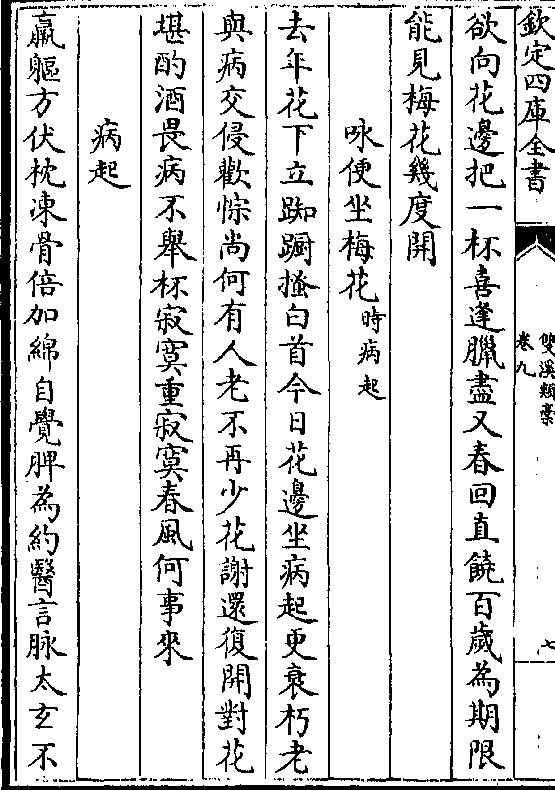 欽定四庫全書
雙溪類稾
卷九
七
欲向花邊把一杯喜逢臘盡又春回直饒百歲為期限
能見梅花幾度開
咏便坐梅花時病起
去年花下立踟蹰搔白首今日花邊坐病起更衰朽老
與病交侵歡悰尚何有人老不再少花謝還復開對花
堪酌酒畏病不舉杯寂寞重寂寞春風何事來
病起
羸軀方伏枕凍骨倍加綿自覺脾為約醫言脉太玄不